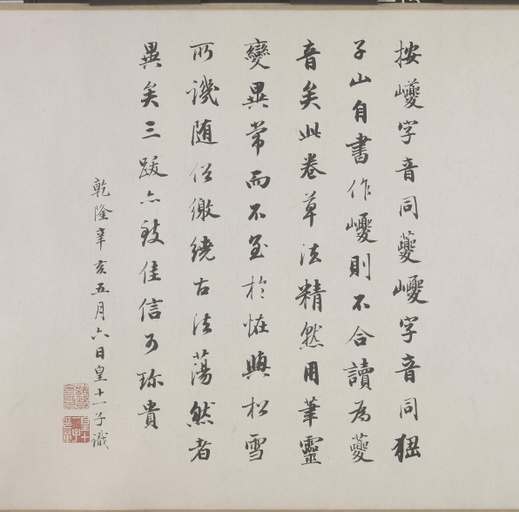 按巙字音同蘷巎字音同猱
子山自書作巙則不合讀為蘷
音矣此卷草法精然用筆靈
變異常而不至於怪與松雪
所譏随俗繳繞古法蕩然者
異矣三跋亦致佳信可珍貴
乾隆辛亥五月六日皇十一子識